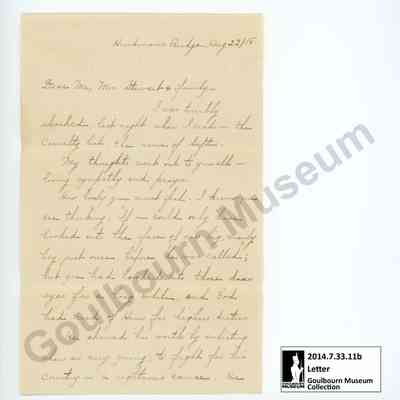 Aug 22/18
Dear Mr, Mrs Stewart & family
I was terribly
shocked last night when I read in the
Casualty list the name of
My thoughts went out to you all in
loving sympathy and prayer.
How badly you must feel. I know you
are thinking. If we could only have
looked into the face of our big, manly
boy just once before he was called;
but you had looked into those dear
eyes for a long while, and God
had need of Him for higher duties
He showed his worth by enlisting
when so very young to fight for his
Country in a righteous cause. We
Goulbourn Museum
2014.7.33.11b
Letter
Goulbourn Museum
Collection